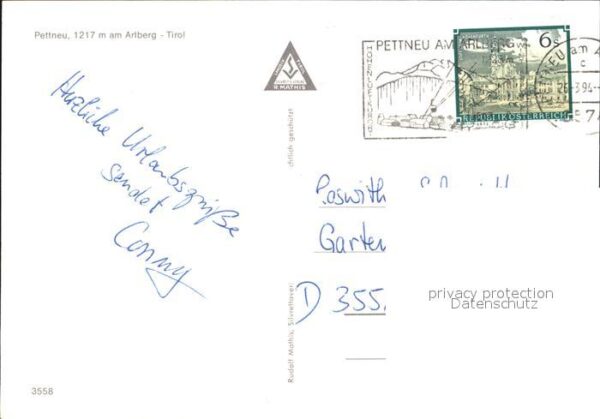 Pettneu, 1217 m am Arlberg - Tirol
Herzliche Urlaubsgrüße
sendet
Conny
R. MATHIS
chtlich geschützt
Rudolf Mathis, Silvrettaver
3558
PETTNEU AM ARLBERG
HÖHENLUFTKURORT
6 S
REPUBLIK ÖSTERREICH
PETTNEU am A
c
26.-3.94
657
Roswith
Garten
D 355
privacy protection
Datenschutz